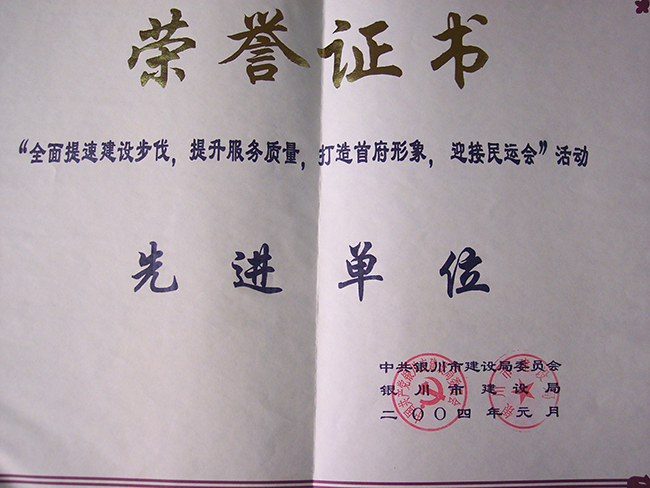 荣誉证书
“全面提速建设步伐，提升服务质量，打造首府形象，迎接民运会”活动
先进单位
中共银川市建设局委员会
银川市建设局
二〇〇四年元月